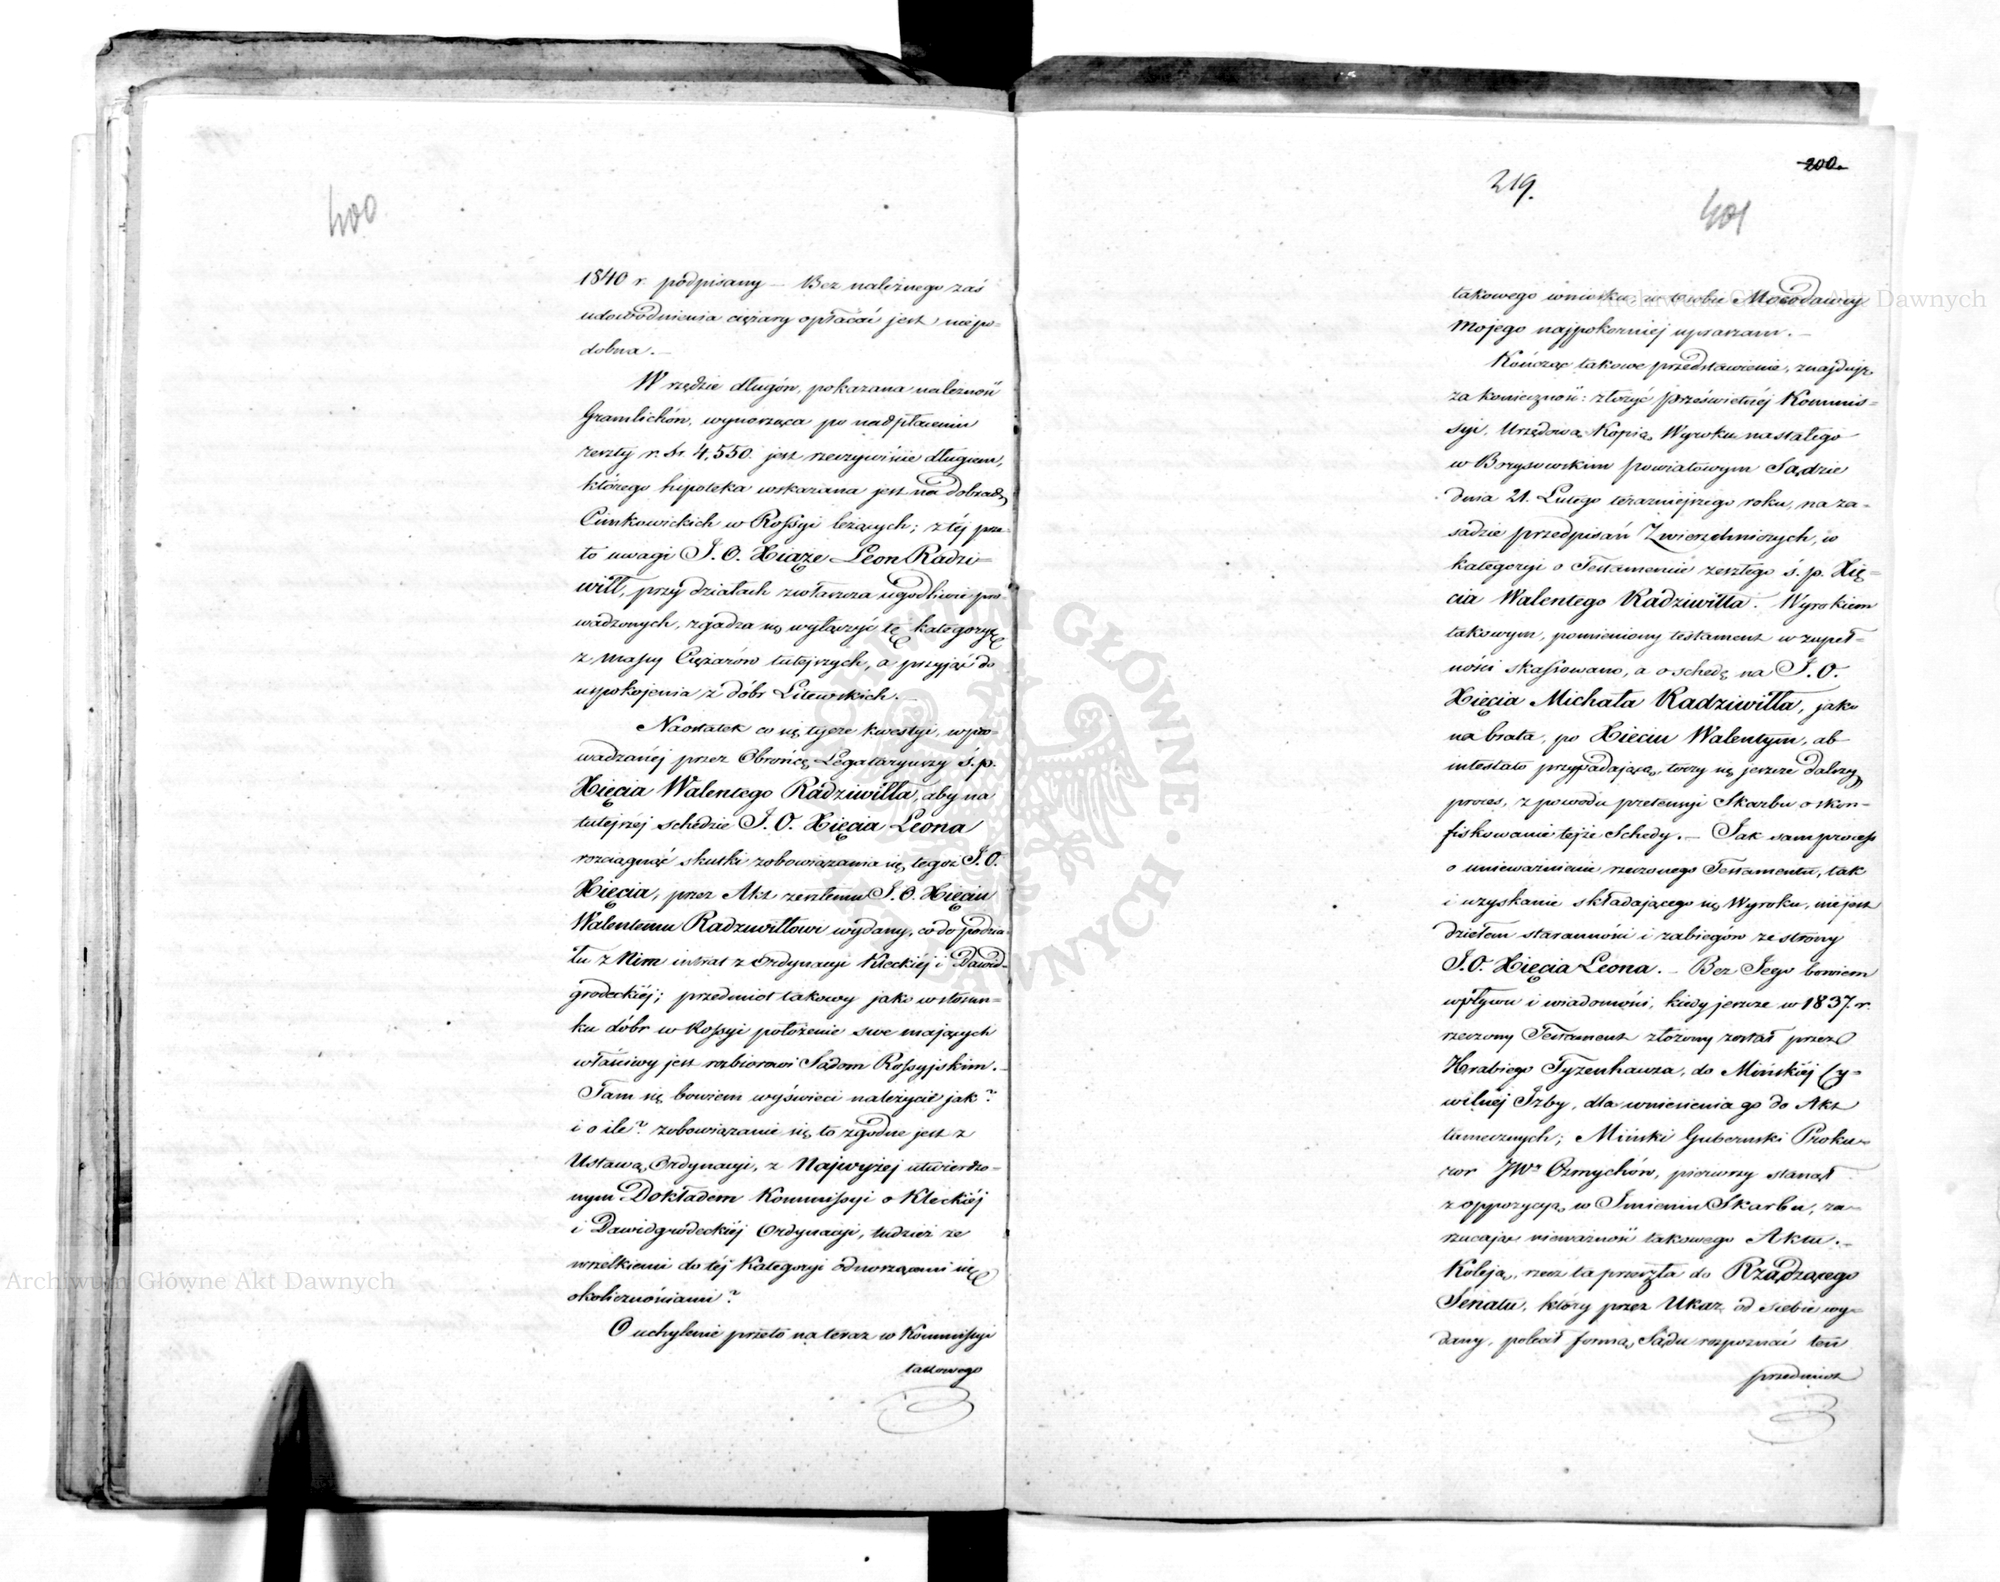 400
1840 r. podpisany — Bez należnego zaś
udowodnienia ciężary opłacać jest niepo-
dobna. —
W rzędzie długów, pokazana należność
Gramlichów, wynosząca po nadpłaceniu
reszty r. sr. 4,550. jest rzeczywiście długiem,
którego hipoteka wskazana jest na dobrach
Cimkowickich w Rossyi leżących; z téj prze-
to uwagi J. O. Xiąże Leon Radzi-
wiłł, przy działach zwłaszcza ugodliwie pro-
wadzonych, zgadza się wyłączyć tę kategoryę
z massy Ciężarów tutejszych, a przyjąć do
uspokojenia z dóbr Litewskich. —
Naostatek co się tycze kwestyi, wpro-
wadzanéj przez Obrońcę Legataryuszy ś. p.
Xięcia Walentego Radziwiłła, aby na
tutejszéj schedzie J. O. Xięcia Leona
rozciągnąć skutki zobowiązania się tegoż J. O.
Xięcia, przez Akt zeszłemu J. O. Xięciu
Walentemu Radziwiłłowi wydany, co do podzia-
łu z Nim intrat z Ordynacyi Kleckiéj i Dawid-
grodeckiéj; przedmiot takowy jako w stosun-
ku dóbr w Rossyi położenie swe mających
właściwy jest rozbiorowi Sądom Rossyjskim. —
Tam się bowiem wyświeci należycie jak?
i o ile? zobowiązanie się to zgodne jest z
Ustawą Ordynacyi, z Najwyżej utwierdzo-
nym Dokładem Kommissyi o Kleckiéj
i Dawidgrodeckiéj Ordynacyi, tudzież ze
wszelkiemi do téj Kategoryi odnoszącemi się
okolicznościami?
O uchylenie przeto na teraz w Kommissyi
takowego
200.
219.
401
takowego wniosku w osobie Mocodawcy
Mojego najpokorniej upraszam. —
Kończąc takowe przedstawienie, znajduję
za konieczność: złożyć Prześwietnéj Kommis-
syi, Urzędową Kopią Wyroku nastałego
w Borysowskim powiatowym Sądzie
dnia 21. Lutego teraźniejszego roku, na za-
sadzie przedpisań Zwierzchniczych, w
kategoryi o Testamencie zeszłego ś. p. Xię-
cia Walentego Radziwiłła. Wyrokiem
takowym, pomieniony testament w zupeł-
ności skassowano, a o schedę na J. O.
Xięcia Michała Radziwiłła, jako
na brata, po Xięciu Walentym, ab
intestato przypadającą, toczy się jeszcze dalszy
proces, z powodu pretensyi Skarbu o skon-
fiskowanie tejże Schedy. — Jak sam process
o unieważnienie rzeczonego Testamentu, tak
i uzyskanie składającego się Wyroku, nie jest
dziełem staranności i zabiegów ze strony
J. O. Xięcia Leona. — Bez Jego bowiem
wpływu i wiadomości, kiedy jeszcze w 1837. r.
rzeczony Testament złożony został przez
Hrabiego Tyzenhauza, do Mińskiéj Cy-
wilnéj Izby, dla wniesienia go do Akt
tamecznych; Miński Gubernski Proku-
ror JWny Ozmychów, pierwszy stanął
z oppozycyą w Imieniu Skarbu, za-
rzucając nieważność takowego Aktu. —
Koleją, rzecz ta przeszła do Rządzącego
Senatu, który przez Ukaz od siebie wy-
dany, polecił formą Sądu rozpoznać ten
przedmiot
Archiwum Główne Akt Dawnych
Archiwum Główne Akt Dawnych